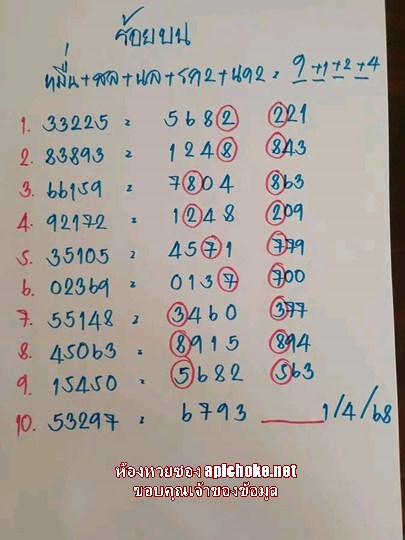 ร้อยบน
หมื่น+พล+นล+รศ2+นศ2 = 9+1+2+4
1. 33225 = 5682 221
2. 83893 = 1248 843
3. 66159 = 7804 863
4. 92172 = 1248 209
5. 35105 = 4571 779
6. 02369 = 0137 700
7. 55148 = 3460 377
8. 45063 = 8915 894
9. 15450 = 5682 563
10. 53297 = 6793 1/4/68
ห้องหวยซอง apichoke.net
ขอบคุณเจ้าของข้อมูล